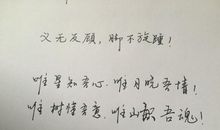 义无反顾，脚不旋踵！
唯星知吾心，唯月晓吾情！
唯树懂吾意，唯山献吾魂！